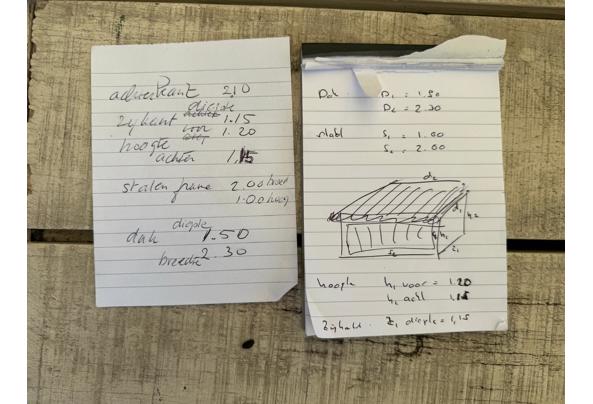 achterkant 2.10
diepte
zijkant 1.15
voor 1.20
hoogte
achter 1,15
stalen frame 2.00 breed
1.00 hoog
diepte
dak 1.50
breedte 2.30
Dak: D₁ = 1.50
D₂ = 2.30
stahl S₁ = 1.00
S₂ = 2.00
d₂
d₁
h₂
h₁
z₁
s₂
hoogte h₁ voor = 1.20
h₂ acht 1,15
Zijkant. Z₁ diepte = 1,15